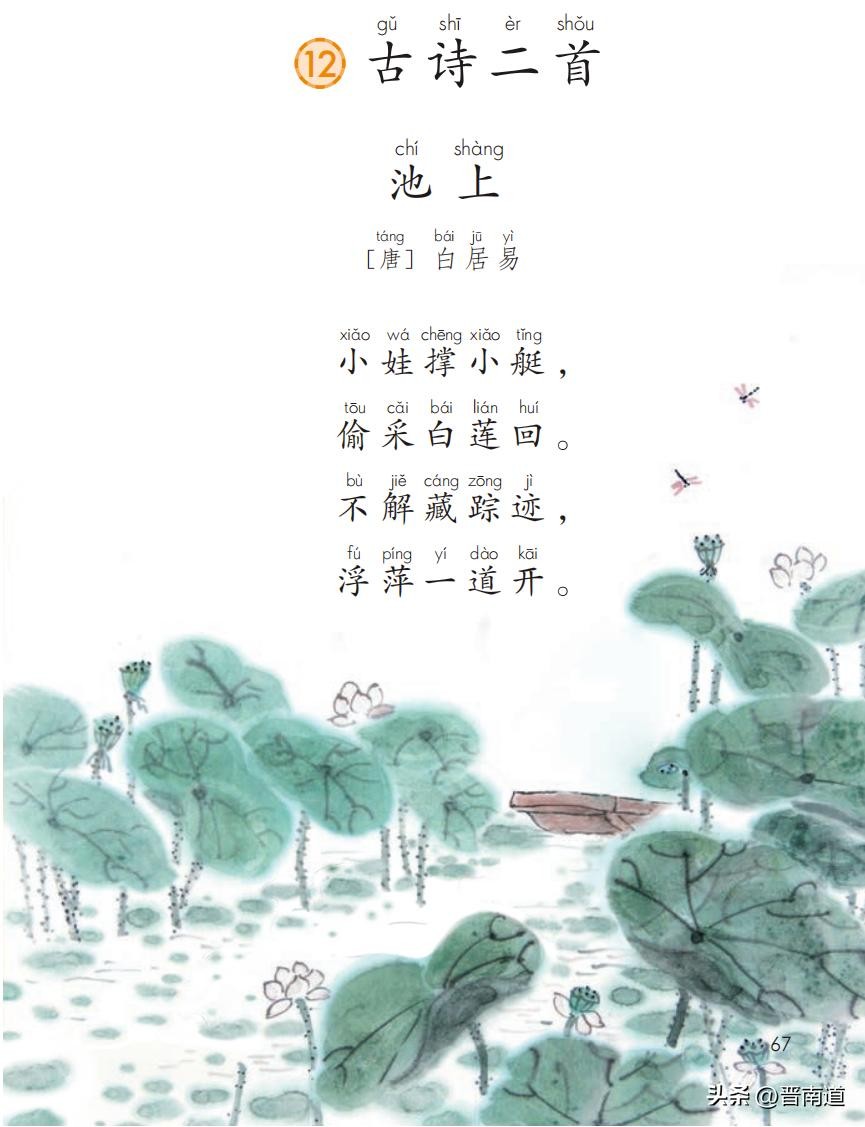 gǔ shī èr shǒu
12 古诗二首
chí shàng
池上
táng bái jū yì
[唐] 白居易
xiǎo wá chēng xiǎo tǐng
小娃撑小艇，
tōu cǎi bái lián huí
偷采白莲回。
bù jiě cáng zōng jì
不解藏踪迹，
fú píng yí dào kāi
浮萍一道开。
67
头条 @晋南道